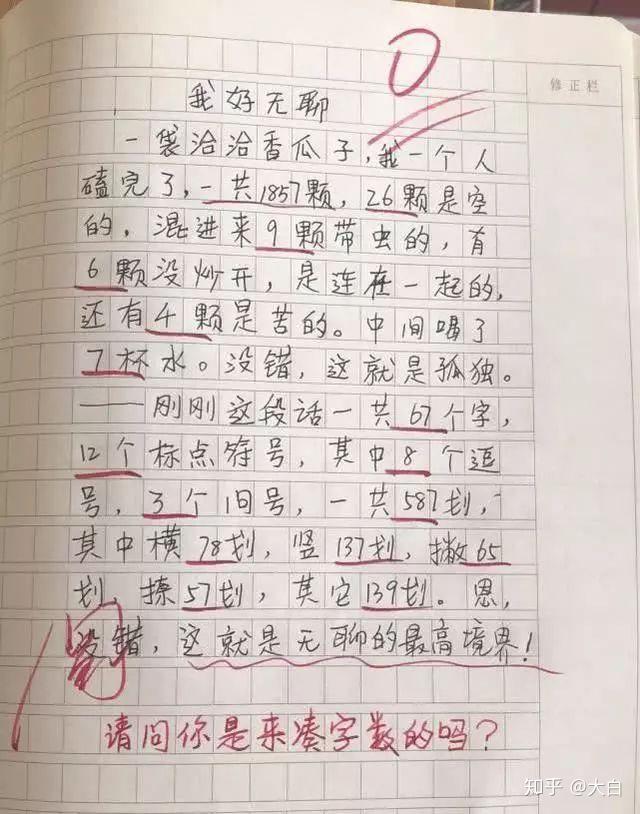 0
修正栏
我好无聊
一袋洽洽香瓜子,我一个人
磕完了,一共1857颗,26颗是空
的,混进来9颗带虫的,有
6颗没炒开,是连在一起的,
还有4颗是苦的。中间喝了
7杯水。没错,这就是孤独。
——刚刚这段话一共67个字,
12个标点符号,其中8个逗
号,3个旧号,一共587划,
其中横78划,竖137划,撇65
划,捺57划,其它139划。恩,
没错,这就是无聊的最高境界!
阅
请问你是来凑字数的吗?
知乎 @大白